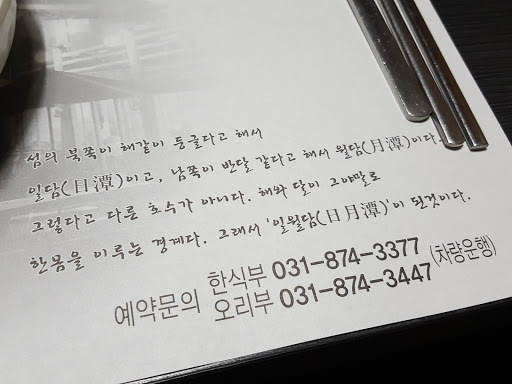 섬의 북쪽이 해같이 둥글다고 해서
일담(日潭)이고, 남쪽이 반달 같다고 해서 월담(月潭)이다.
그렇다고 다른 호수가 아니다. 해와 달이 그야말로
한몸을 이루는 경계다. 그래서 '일월담(日月潭)'이 된것이다.
예약문의 한식부 031-874-3377
오리부 031-874-3447 (차량운행)